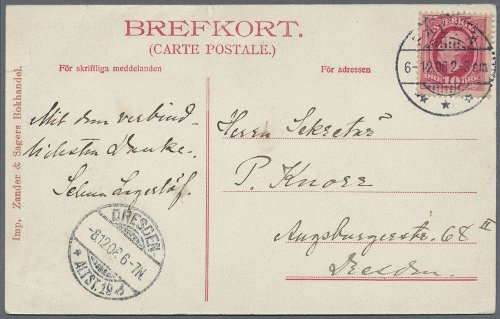 BREFKORT.
(CARTE POSTALE.)
För skriftliga meddelanden
För adressen
Imp. Zander & Sagers Bokhandel.
Mit dem verbind-
lichsten Danke.
Selma Lagerlöf.
Herrn Sekretär
P. Knorr
Augsburgerstr. 68 II
Dresden.
6-12.06 2-
DRESDEN-
-8.12.06. 6-7N
* ALTST. 19
10